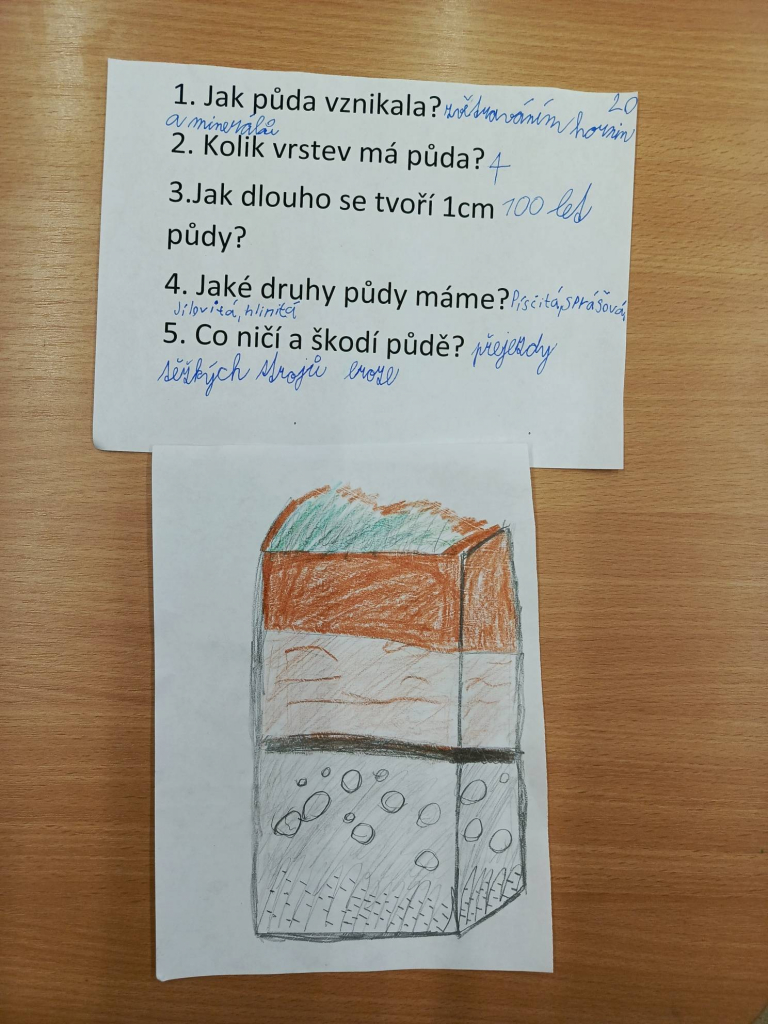 20
1. Jak půda vznikala? zvětráváním hornin
a minerálů
2. Kolik vrstev má půda? 4
3.Jak dlouho se tvoří 1cm 100 let
půdy?
4. Jaké druhy půdy máme? Písčitá, sprášová,
Jílovitá, hlinitá
5. Co ničí a škodí půdě? přejezdy
těžkých strojů eroze